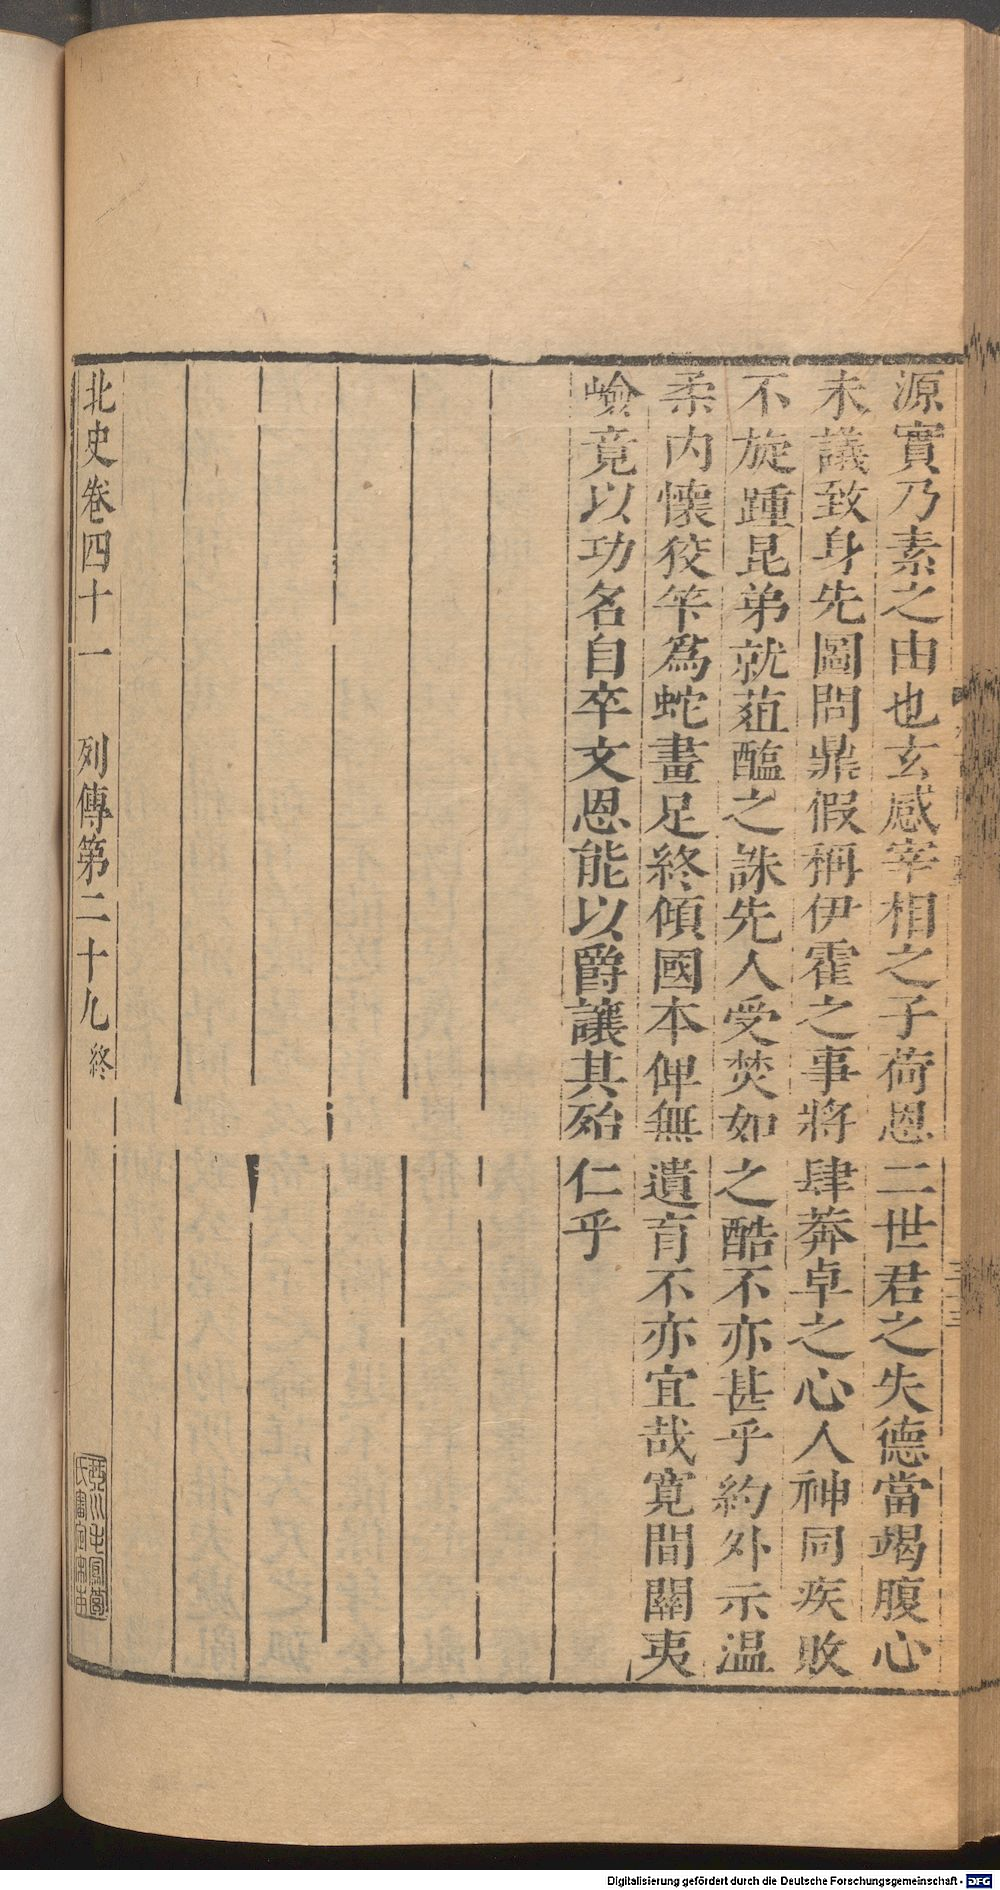 源實乃素之由也玄感宰相之子荷恩二世君之失德當竭腹心
未議致身先圖問鼎假稱伊霍之事將肆莽卓之心人神同疾敗
不旋踵昆弟就葅醢之誅先人受焚如之酷不亦甚乎約外示温
柔内懷狡筭爲蛇畫足終傾國本俾無遺育不亦宜哉寛間關夷
嶮竟以功名自卒文恩能以爵讓其殆仁乎
北史卷四十一 列傳第二十九終
Digitalisierung gefördert durch die Deutsche Forschungsgemeinschaft - DFG